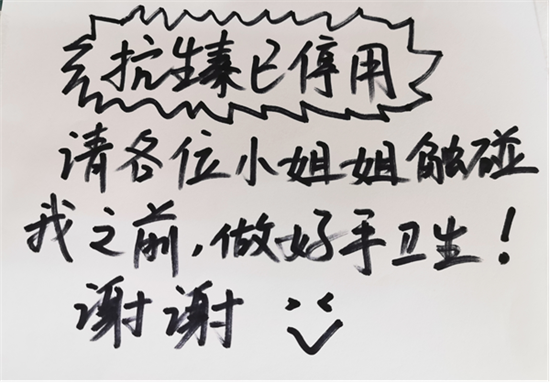 抗生素已停用
请各位小姐姐触碰
我之前，做好手卫生！
谢谢